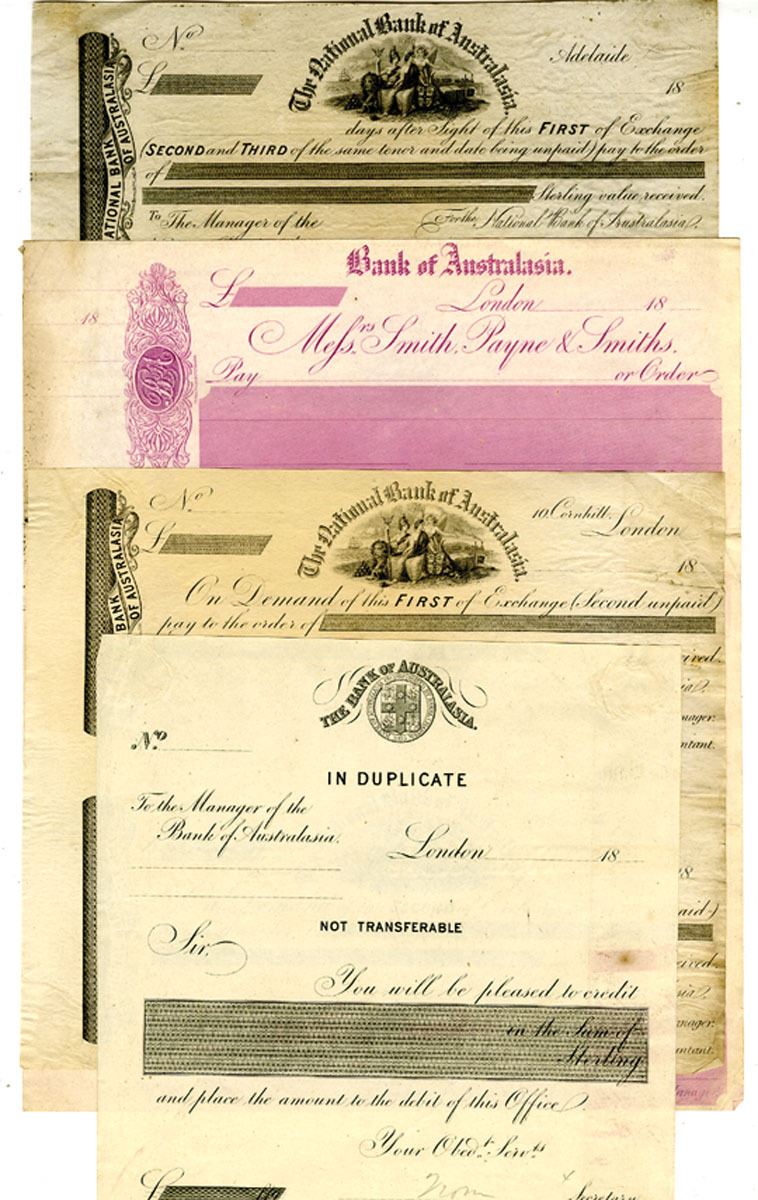 The National Bank of Australasia.
No
Adelaide
£
18
NATIONAL BANK
OF AUSTRALASIA
days after Sight of this FIRST of Exchange
(SECOND and THIRD of the same tenor and date being unpaid) pay to the order
of
Sterling value received.
To The Manager of the
For the National Bank of Australasia.
Bank of Australasia.
£
London 18
18
Messrs Smith, Payne & Smiths.
Pay or Order
The National Bank of Australasia.
No
10, Cornhill, London
£
18
BANK
OF AUSTRALASIA
On Demand of this FIRST of Exchange (Second unpaid)
pay to the order of
ived.
ia.
nager.
ntant.
18
aid)
eived.
sia.
anager.
untant.
THE BANK OF AUSTRALASIA.
No
IN DUPLICATE
To the Manager of the
Bank of Australasia.
London 18
NOT TRANSFERABLE
Sir,
You will be pleased to credit
in the Sum of
Sterling
and place the amount to the debit of this Office.
Your Obedt. Servts
£
Secretary